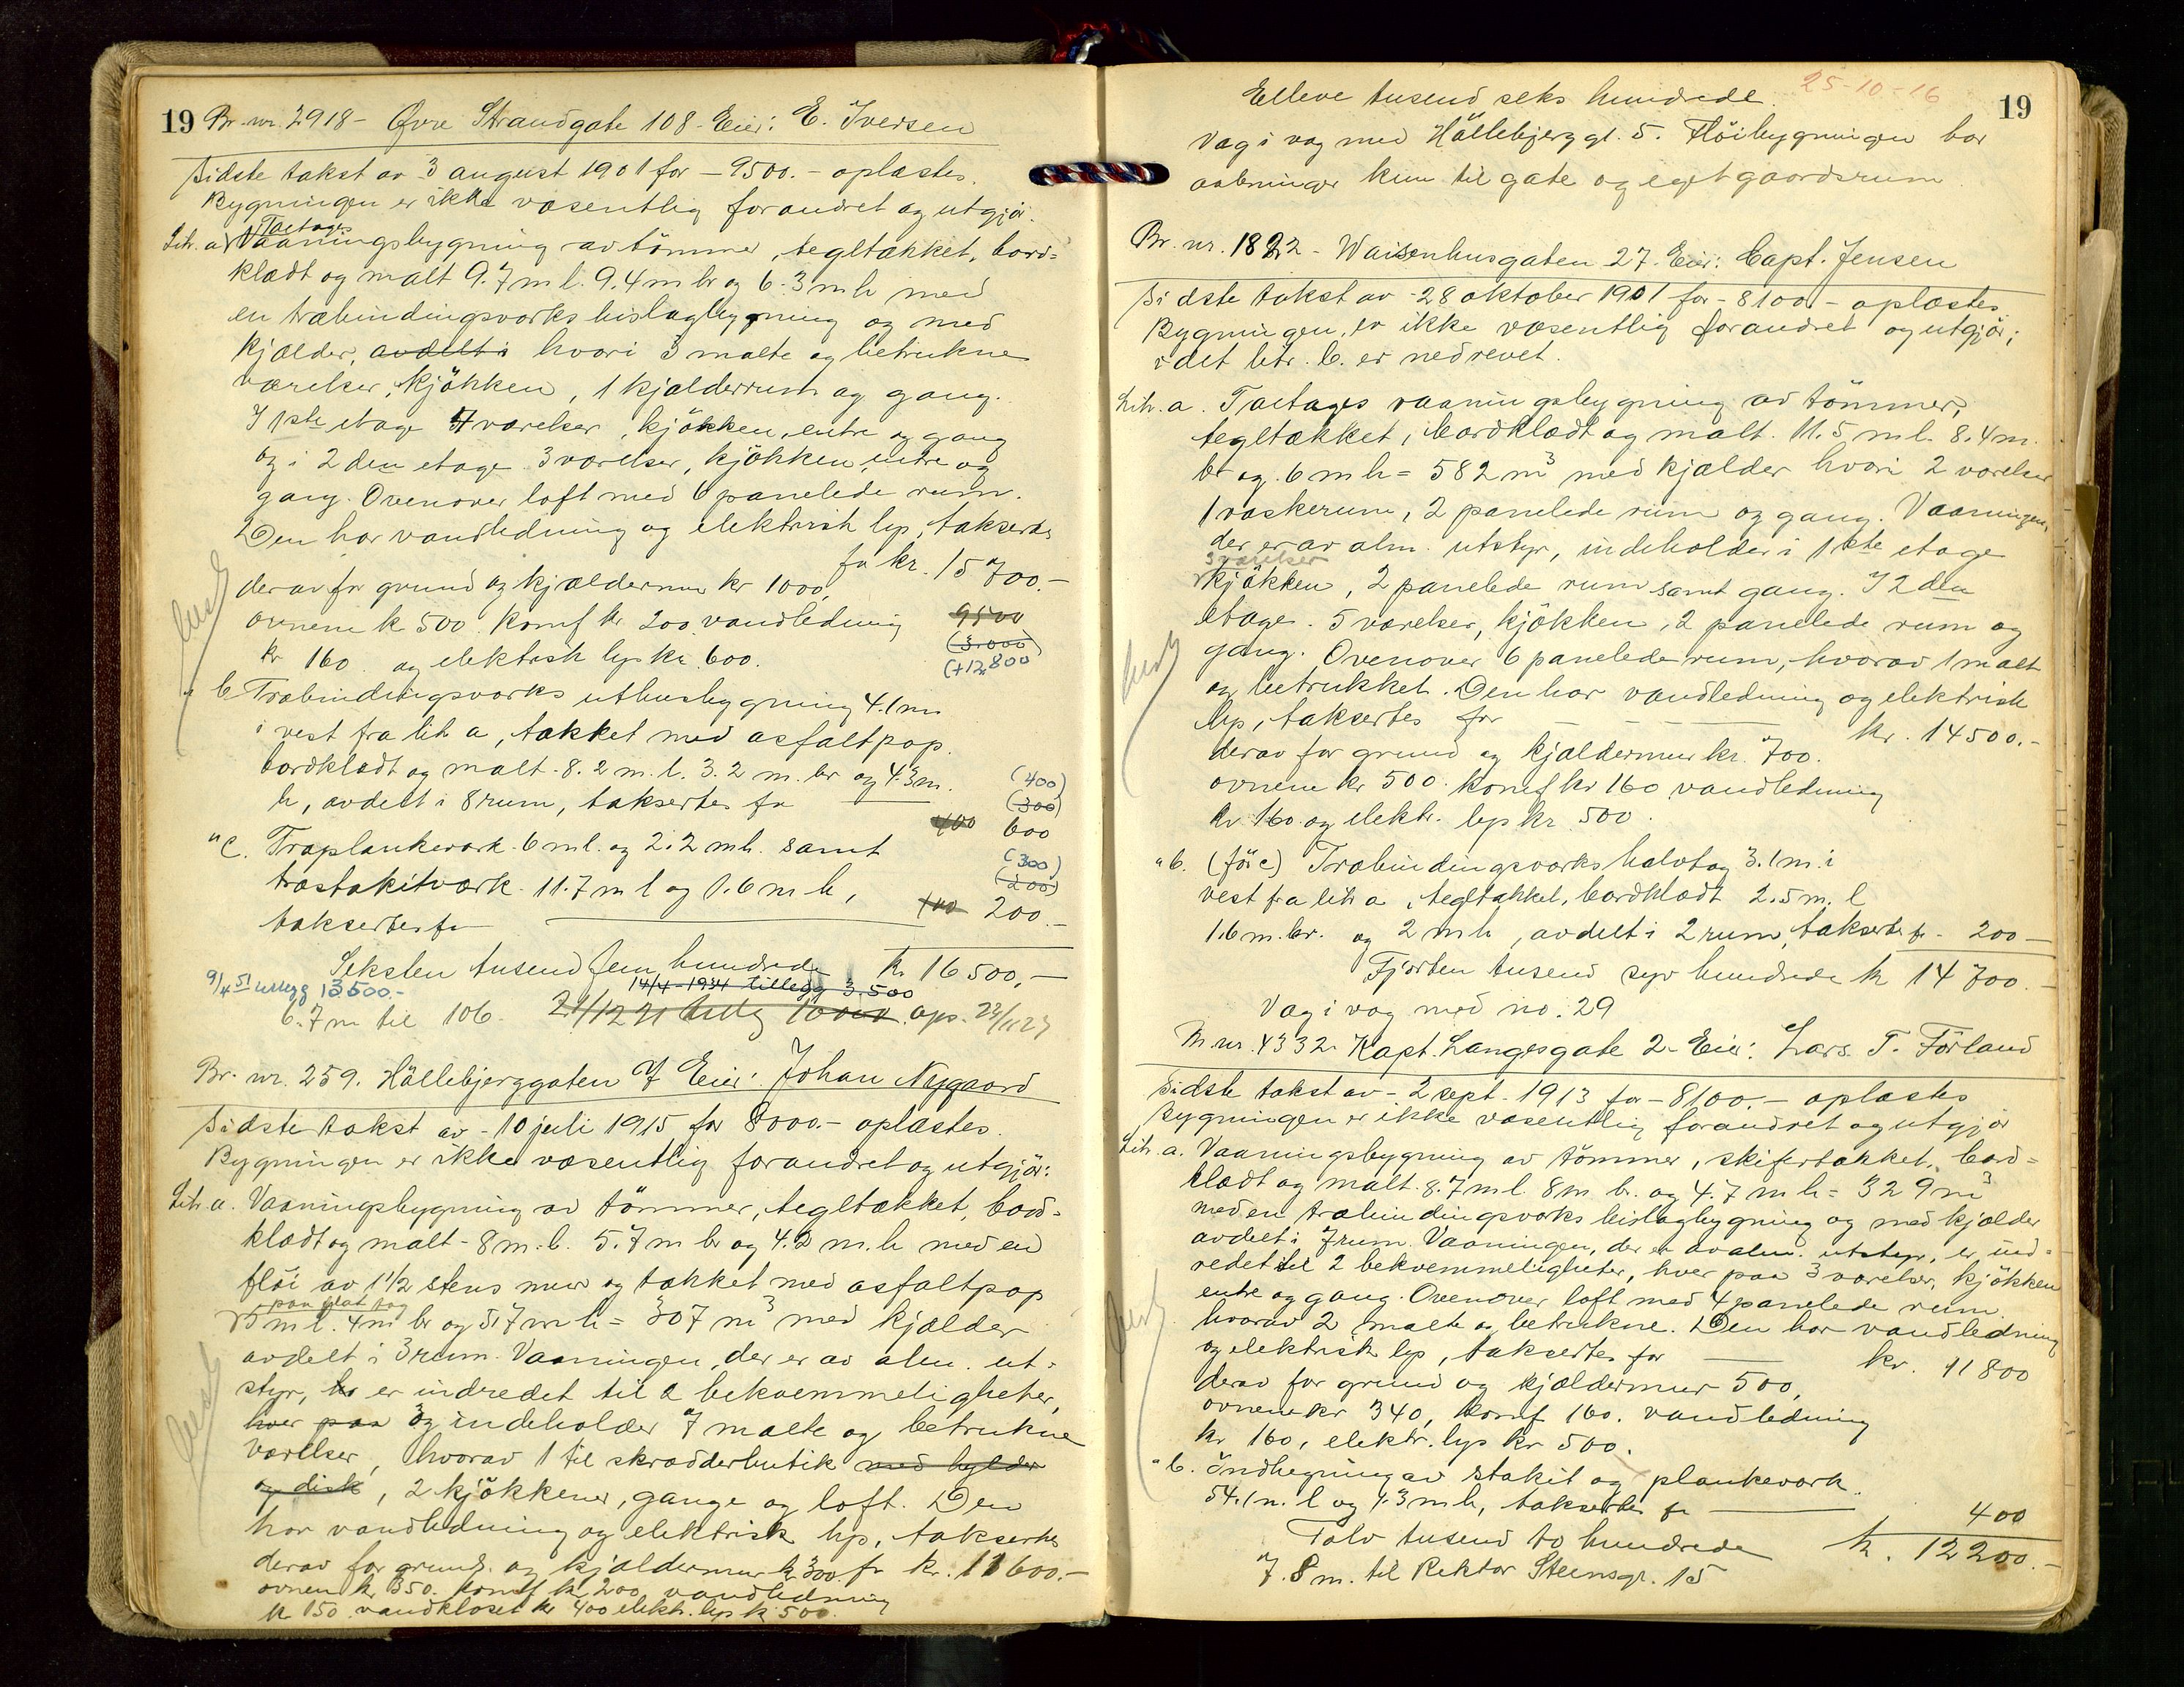 19 Br. nr. 2918 - Øvre Strandgate 108 - Eier: E. Iversen
Sidste takst av 3 august 1901 for - 9500.- oplæstes.
Bygningen er ikke væsentlig forandret og utgjör:
Toetages
Litr. a. Vaaningsbygning av tömmer, tegltækket, bord=
klædt og malt 9.7 m l. 9.4 m br og 6.3 m h med
en træbindingsværks bislagbygning og med
kjælder, avdelt i hvori 3 malte og betrukne
værelser, kjökken, 1 kjælderrum og gang.
I 1ste etage 4 værelser, kjökken, entre og gang
og i 2den etage 3 værelser, kjökken, entre og
gang. Ovenover loft med 6 panelede rum.
Den har vandledning og elektrisk lys, taksertes
for kr. 15700.-
derav for grund og kjældermur kr 1000,
ovnene k 500. komf kr. 200 vandledning
9500
(3.000)
kr 160. og elektrisk lys kr. 600.
(+12,800
" b. Træbindingsværks uthusbygning 4.1 m
i vest fra lit a, tækket med asfaltpap.
bordklædt og malt - 8.2 m. l. 3.2 m. br og 4.3 m.
(400)
h, avdelt i 8 rum, taksertes for
(300)
400 600
" c. Træplankeværk 6 m l. og 2.2 m h. samt
(300)
træstakitværk 11.7 m l og 1.6 m h,
(200)
taksertes for 100 200.-
Seksten tusend fem hundrede kr 16500,-
9/4 51 tillegg 13500.-
14/4-1934 tillegg 3.500
6.7 m til 106. 21/12 21 tillæg 10000. ops. 23/11 27
Br. nr. 259. Hällebjerggaten 7 Eier: Johan Nygaard
Sidste takst av - 10 juli 1915 for 8000.- oplæstes.
Bygningen er ikke væsentlig forandret og utgjör:
Litr. a. Vaaningsbygning av tömmer, tegltækket, bord=
klædt og malt - 8 m. l. 5.7 m br og 4.2 m. h med en
flöi av 1 1/2 stens mur og tækket med asfaltpap
paa flat tag
5 m l. 4 m br og 5.7 m h = 307 m³ med kjælder
avdelt i 3 rum. Vaaningen, der er av alm. ut=
styr, er indredet til 2 bekvemmeligheter,
hver paa 3 og indeholder 7 malte og betrukne
værelser, hvorav 1 til skrædderbutik med hylder
og disk, 2 kjökkener, gange og loft. Den
har vandledning og elektrisk lys, taksertes
derav for grund. og kjældermur k 300. for kr. 11600.-
ovnen kr 350. komf kr 200 vandledning
kr 150. vandkloset kr 400 elektr. lys k 500.
Elleve tusend seks hundrede. 25-10-16
19
Væg i væg med Hällebjerggt. 5. Flöibygningen har
aabninger kun til gate og eget gaardsrum.
Br. nr. 1822 - Waisenhusgaten 27. Eier: Capt. Jensen
Sidste takst av - 28 oktober 1901 for - 8100.- oplæstes
Bygningen, er ikke væsentlig forandret og utgjör;
idet litr. b. er nedrevet.
Litr. a. Toetages vaaningsbygning av tömmer,
tegltækket, bordklædt og malt. 11.5 m l. 8.4 m.
br og 6 m h = 582 m³ med kjælder hvori 2 værelser
1 vaskerum, 2 panelede rum og gang. Vaaningen,
der er av alm. utstyr, indeholder i 1ste etage
3 værelser
kjökken, 2 panelede rum samt gang. I 2den
etage. 5 værelser, kjökken, 2 panelede rum og
gang. Ovenover 6 panelede rum, hvorav 1 malt
og betrukket. Den har vandledning og elektrisk
lys, taksertes for kr. 14500.-
derav for grund og kjældermur kr. 700.
ovnene kr 500. komf kr 160 vandledning
kr 160 og elektr. lys kr 500.
" b. (för c) Træbindingsværks halvtag 3.1 m. i
vest fra litr a, tegltækket, bordklædt 2.5 m. l
1.6 m. br. og 2 m h, avdelt i 2 rum, taksertes for - 200 -
Fjorten tusend syv hundrede kr 14700.-
Væg i væg med no. 29
Br. nr. 4332 Kapt. Langesgate 2 - Eier: Lars T. Förland
Sidste takst av - 2 sept. 1913 for - 8100.- oplæstes
Bygningen er ikke væsentlig forandret og utgjör
Litr. a. Vaaningsbygning av tömmer, skifertækket, bord=
klædt og malt. 8.7 m l. 8 m br. og 4.7 m h = 329 m³
med en træbindingsværks bislagbygning og med kjælder
avdelt i 7 rum. Vaaningen, der er av alm. utstyr, er ind=
redet til 2 bekvemmeligheter, hver paa 3 værelser, kjökken
entre og gang. Ovenover loft med 4 panelede rum
hvorav 2 malte og betrukne. Den har vandledning
og elektrisk lys, taksertes for kr. 11800
derav for grund og kjældermur 500,
ovnene kr 340, komf 160. vandledning
kr 160, elektr. lys kr 500.
" b. Indhegning av stakit og plankeværk.
54.1 m. l og 1.3 m h, taksertes for 400
Tolv tusend to hundrede kr. 12200.-
7.8 m. til Rektor Steensgt. 15